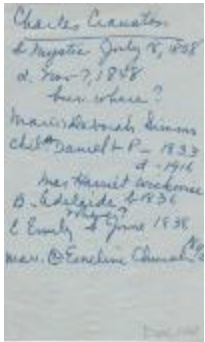 Charles Cranston
b Mystic July 8, 1808
d. Nov 7, 1848
bur. where?
Mar. Deborah Simms
Chil Daniel P - 1833
d - 1916
Mar Harriet
B - Adelaide b 1836
where?
C Emily b June 1838
mar. @ Emeline Church